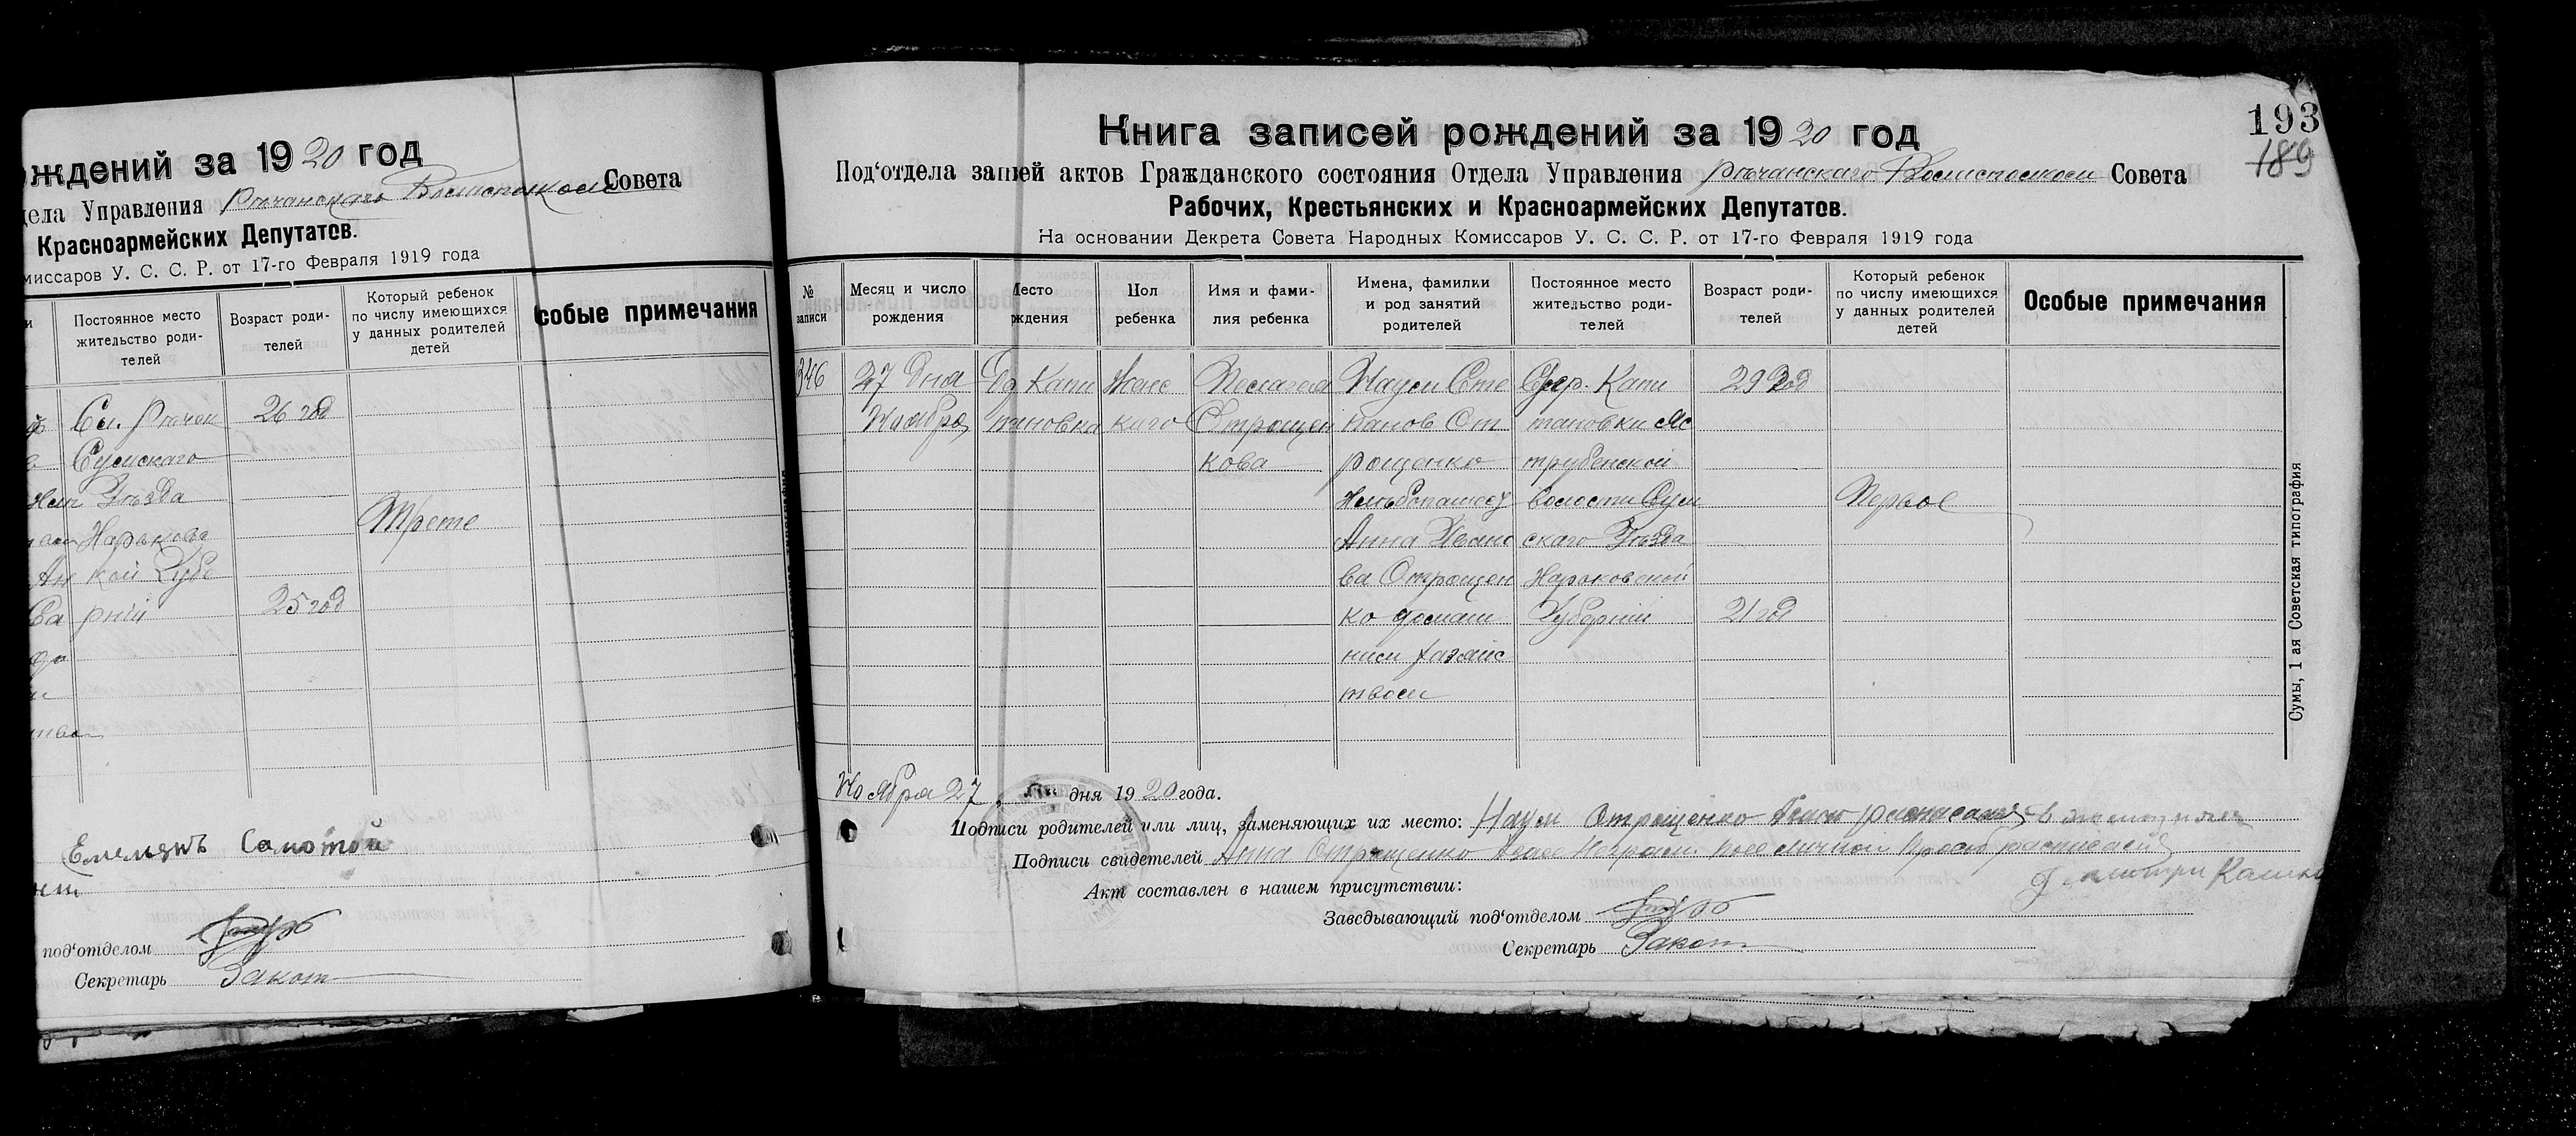 ождений за 1920 год
дела Управления Рѣчанскаго Волисполкома Совета
Красноармейских Депутатов.
миссаров У. С. С. Р. от 17-го Февраля 1919 года
Постоянное место жительство роди-телей
Возраст роди-телей
Который ребенок по числу имеющихся у данных родителей детей
собые примечания
Сл. Рѣчек 26 год
Сумскаго
Уѣзда
Харьковс Трете
кой Губе
рніи 25 год
Емельянъ Самотой
под'отделом
Секретарь Закот
193
189
Книга записей рождений за 1920 год
Под'отдела записей актов Гражданского состояния Отдела Управления Рѣчанскаго Волисполкома Совета
Рабочих, Крестьянских и Красноармейских Депутатов.
На основании Декрета Совета Народных Комиссаров У. С. С. Р. от 17-го Февраля 1919 года
№ записи
Месяц и число рождения
Место ждения
Пол ребенка
Имя и фами-лия ребенка
Имена, фамилки и род занятий родителей
Постоянное место жительство роди-телей
Возраст роди-телей
Который ребенок по числу имеющихся у данных родителей детей
Особые примечания
346 27 Дня Капи Женс Пелагея Наум Сте Капи 29 год
Ноября тановка каго Отрощен панов От тановки Яс
кова рощенко трубенской
Хлѣбопашец волости Сум Первое
Анна Ивано скаго Уѣзда
ва Отрощен Харьковской
ко домаш Губерніи 21 год
ним хазяйс
твом
Ноября 27 дня 1920 года.
Подписи родителей или лиц, заменяющих их место: Наум Отрощенко
Подписи свидетелей Анна Отрощенко личной
Акт составлен в нашем присутствии:
Заведывающий под'отделом
Секретарь Закот
Сумы, 1 ая Советская типография